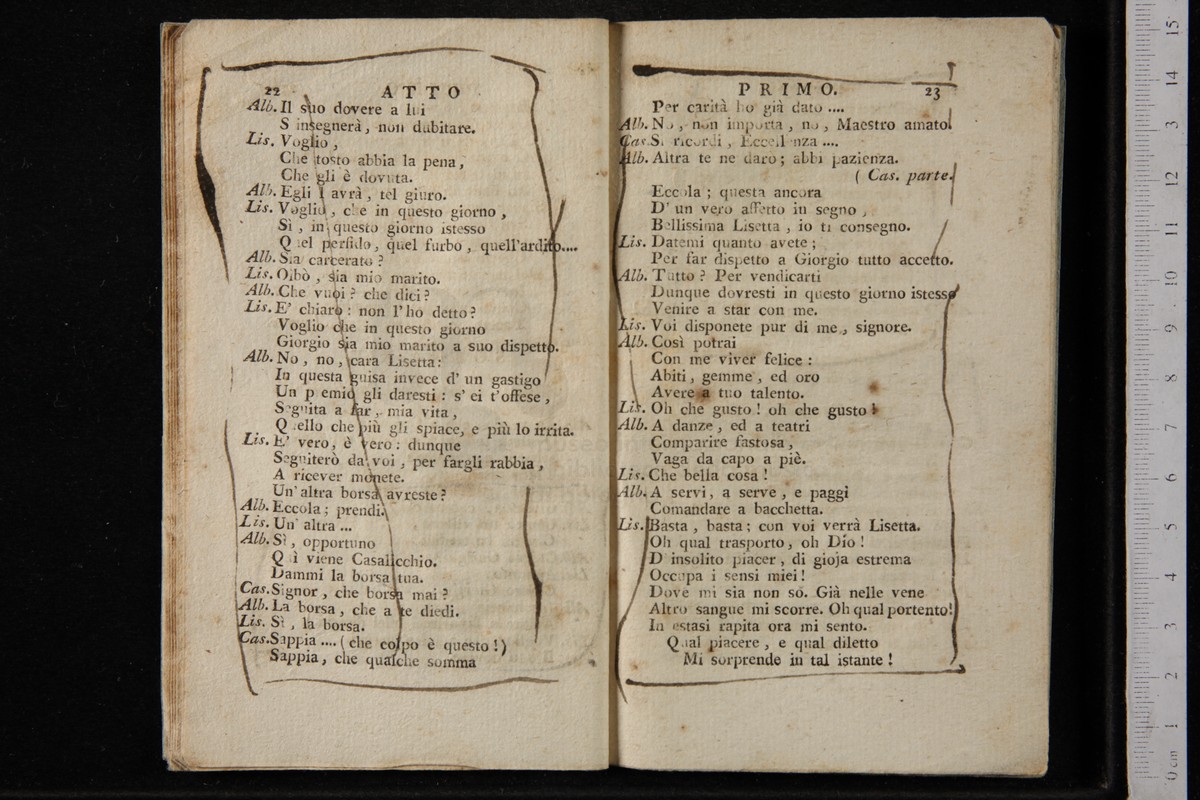 22 ATTO
Alb. Il suo dovere a lui
S' insegnerà, non dubitare.
Lis. Voglio,
Che tosto abbia la pena,
Che gli è dovuta.
Alb. Egli l' avrà, tel giuro.
Lis. Voglio, che in questo giorno,
Sì, in questo giorno istesso
Quel perfido, quel furbo, quell'ardito....
Alb. Sia carcerato?
Lis. Oibò, sia mio marito.
Alb. Che vuoi? che dici?
Lis. E' chiaro: non l'ho detto?
Voglio che in questo giorno
Giorgio sia mio marito a suo dispetto.
Alb. No, no, cara Lisetta:
In questa guisa invece d' un gastigo
Un premio gli daresti: s' ei t'offese,
Seguita a far, mia vita,
Quello che più gli spiace, e più lo irrita.
Lis. E' vero, è vero: dunque
Seguiterò da voi, per fargli rabbia,
A ricever monete.
Un'altra borsa avreste?
Alb. Eccola; prendi.
Lis. Un' altra ...
Alb. Sì, opportuno
Quì viene Casalicchio.
Dammi la borsa tua.
Cas. Signor, che borsa mai?
Alb. La borsa, che a te diedi.
Lis. Sì, la borsa.
Cas. Sappia .... (che colpo è questo!)
Sappia, che qualche somma
PRIMO. 23
Per carità ho già dato ....
Alb. No, non importa, no, Maestro amato.
Cas. Si ricordi, Eccellenza ....
Alb. Altra te ne darò; abbi pazienza.
( Cas. parte.
Eccola; questa ancora
D' un vero affetto in segno,
Bellissima Lisetta, io ti consegno.
Lis. Datemi quanto avete;
Per far dispetto a Giorgio tutto accetto.
Alb. Tutto? Per vendicarti
Dunque dovresti in questo giorno istesso
Venire a star con me.
Lis. Voi disponete pur di me, signore.
Alb. Così potrai
Con me viver felice:
Abiti, gemme, ed oro
Avere a tuo talento.
Lis. Oh che gusto! oh che gusto!
Alb. A danze, ed a teatri
Comparire fastosa,
Vaga da capo a piè.
Lis. Che bella cosa!
Alb. A servi, a serve, e paggi
Comandare a bacchetta.
Lis. Basta, basta; con voi verrà Lisetta.
Oh qual trasporto, oh Dio!
D' insolito piacer, di gioja estrema
Occupa i sensi miei!
Dove mi sia non sò. Già nelle vene
Altro sangue mi scorre. Oh qual portento!
In estasi rapita ora mi sento.
Qual piacere, e qual diletto
Mi sorprende in tal istante!
0 cm 1 2 3 4 5 6 7 8 9 10 11 12 13 14 15